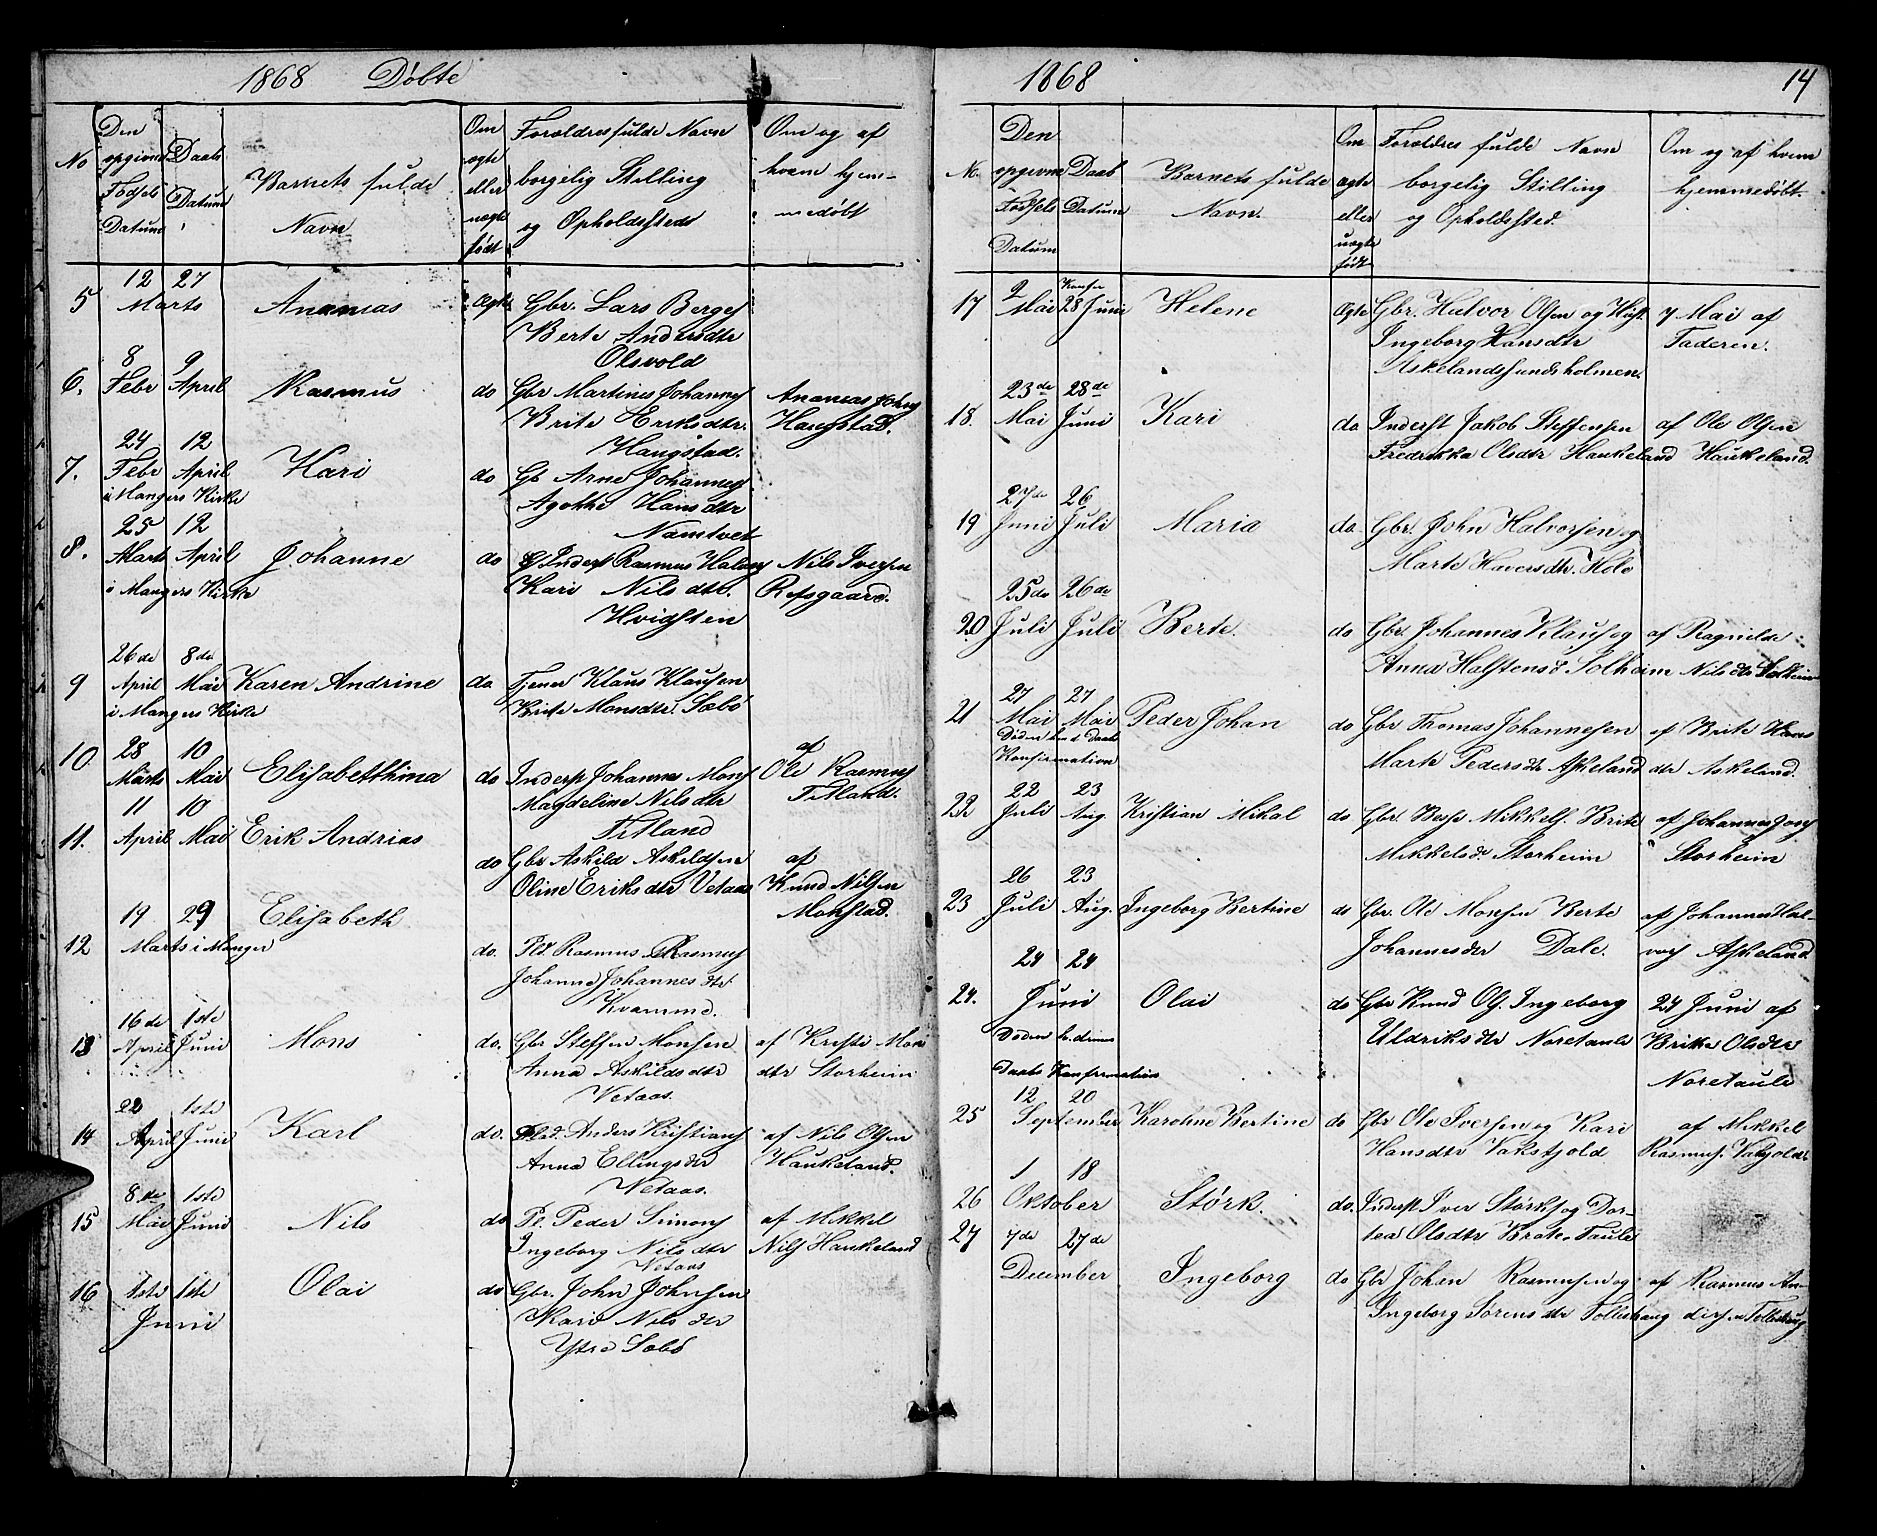 1868 Døbte
No
Den opgivne Fødsels Datum
Daabs Datum
Barnets fulde Navn
Om ægte eller uægte født
Forældres fulde Navn borgelig Stilling og Opholdssted
Om og af hvem hjemmedøbt
5 12 27 Marts Ananias Ægte Gbr. Lars Bergej
Berte Andersdtr
Olsvold
6. 8 Febr 9 April Rasmus do Gbr Martines Johannes Ananias Johns
Brite Eriksdtr. Haugstad.
Haugstad.
7. 24 Febr 12 April Kari do Gb Arne Johannes
i Mangers Kirke Agothe Hansdtr
Namtvet
8. 25 Marts 12 April Johanne do Inderst Rasmus Nils Iversen
i Mangers Kirke Kari Nilsdtr. Refsgaard.
Hvidsten
9 26de April 8de Mai Karen Andrine do Tjener Klaus Klausen
i Mangers Kirke Brite Monsdtr. Sæbø
10 28 Marts 10 Mai Elisabetthina do Inderst Johannes Mons af Ole Rasmus
Magdeline Nilsdtr Titland.
Titland
11. 11 April 10 Mai Erik Andrias do Gbr Askild Askildsen af
Oline Eriksdtr Vetaas Knud Nilsen
Monstad.
12 19 29 Marts i Manger Elisabeth do. Pl. Rasmus Rasmus
Johanne Johannesdtr
Kvamme.
13 16de April 1ste Juni Mons do. Gbr Steffen Monsen af Kristi Mons
Anna Askildsdtr dtr Storheim
Vetaas.
14 22 April 1ste Juni Karl do. Anders Kristians af Nils Olsen
Anna Ellingsdtr Haukeland.
Vetaas.
15 8de Mai 1ste Juni Nils do Pl. Peder Simons af Mikkel
Ingeborg Nilsdtr Nils Haukeland
Vetaas
16 1ste 1ste Juni Olai do Gbr. John Johnsen
Kari Nilsdtr
Ytre Sæbø
1868 14
N.
Den opgivne Fødsels Datum
Daab Datum
Barnets fulde Navn.
Om ægte eller uægte født
Forældres fulde Navn borgelig Stilling og Opholdssted.
Om og af hvem hjemmedøbt.
17 2 Mai 28 Juni Helene Ægte Gbr. Halvor Olsen og Hust. 7 Mai af
Ingeborg Hansdtr Faderen.
Askelandssundsholmen.
18. 23de Mai 28de Juni Kari do Inderst Jakob Steffensen af Ole Olsen
Fredrikka Olsdtr Haukeland Haukeland.
19 27de Juni 26 Juli Maria do Gbr. John Halvorsen og
Marte Haversdtr. Hole
20 25de Juli 26de Juli Berte. do Gbr. Johannes Klaus og af Ragnilde
Anna Halstensd Solheim Nilsdtr Solheim
21 27 Mai 27 Mai Peder Johan do Gbr Thomas Johannesen af Brite Hans
Marte Pedersdtr Askeland dtr Askeland.
Konfirmation
22 22 Juli 23 Aug. Kristian Mikal do Gbr. Mikkels. Brite af Johannes
Mikkelsdr Storheim Storheim
23 26 Juli 23 Aug. Ingeborg Bertine do Gbr. Ole Monsen Berte af Johannes Hal-
Johannesdtr Dale. vors Askeland
24. 24 24 Juni Olai do Gbr Knud Ols. Ingeborg 24 Juni af
Uldriksdtr Noretaule Brite Olsdtr
Daabs Konfirmation Noretaule
25 12 20 September Karoline Bertine do Gbr Ole Iversen og Kari af Mikkel
Hansdtr Vakstjold Rasmus.
26 1 18 Oktober Størk. do. Inderst Iver Størks og Dor-
tea Olsdtr Taule
27 7de 27de December Ingeborg do Gbr Johen Rasmusen og af Rasmus An-
Ingeborg Sørensdtr Tolleshaug dersen Tolleshaug